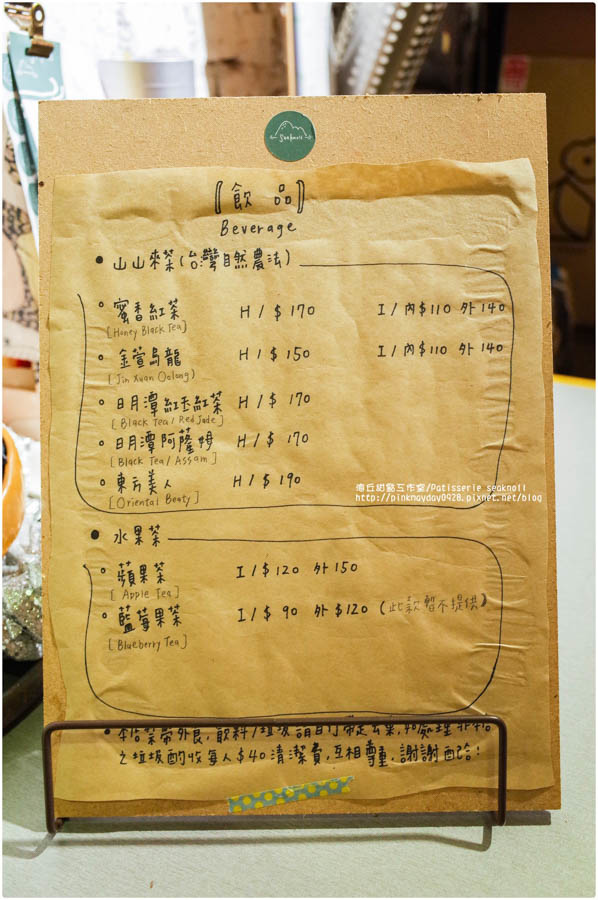 Seaknoll
〖飲品〗
Beverage
● 山山來茶(台灣自然農法)
蜜香紅茶 H / $ 170 I / 內$110 外140
[Honey Black Tea]
金萱烏龍 H / $ 150 I / 內$110 外140
[Jin Xuan Oolong)
日月潭紅玉紅茶 H / $ 170
[Black Tea / Red Jade]
日月潭阿薩姆 H / $ 170
[Black Tea / Assam]
東方美人 H / $ 190
[Oriental Beaty]
海丘甜點工作室/Patisserie seaknoll
http://pinkmayday0928.pixnet.net/blog
● 水果茶
蘋果茶 I / $ 120 外150
[Apple Tea]
藍莓果茶 I / $ 90 外$120 (此款暫不提供)
[Blueberry Tea]
● 本店禁帶外食,飲料/垃圾請自行帶走丟棄,如處理非本店
之垃圾酌收每人$40清潔費,互相尊重,謝謝配合!